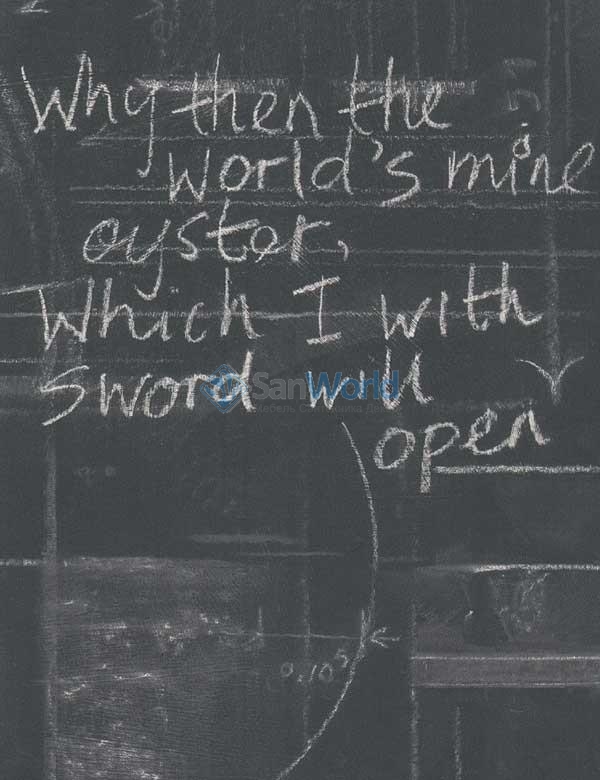 Why then the
world's mine
oyster,
Which I with
sword will
SanWorld
open
0.105